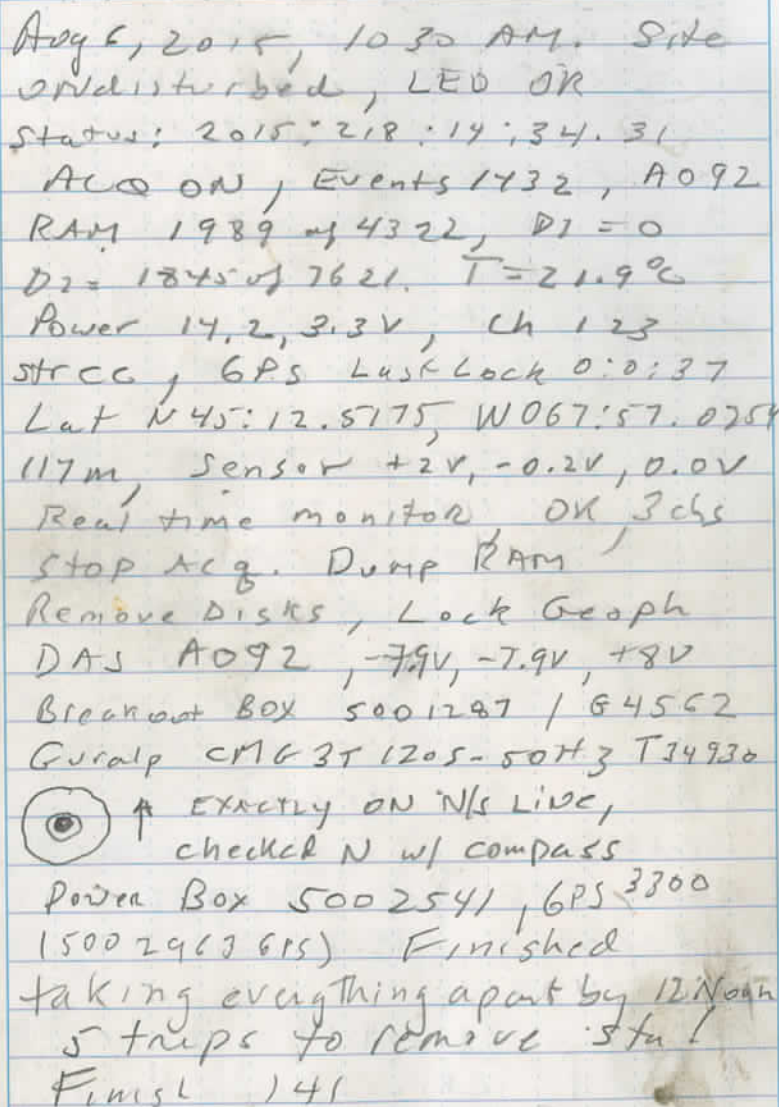 Aug 6, 2015, 10 30 AM. Site
undisturbed, LED OK
Status: 2015:218:14:34.31
ACQ ON, Events 1432, A092
RAM 1989 of 4322, D1 = 0
D2 = 1845 of 7621. T=21.9°C
Power 14.2, 3.3V, Ch 123
GPS Last Lock 0:0:37
Lat N45:12.5175, W067:57.0254
117m, Sensor +2V, -0.2V, 0.0V
Real time monitor, OK, 3 chs
Stop Acq. Dump RAM
Remove Disks, Lock Geoph
DAS A092, -7.9V, -7.9V, +8V
Breakout Box 5001287 / G4562
Guralp CMG 3T 120s-50Hz T34930
↑ EXACTLY ON N/S LINE,
checked N w/ compass
Power Box 5002541, GPS 3300
(5002963 GPS) Finished
taking everything apart by 12 Noon
5 trips to remove sta!
Finish